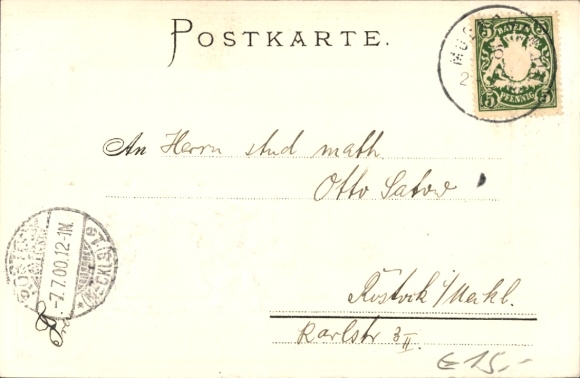 POSTKARTE.
BAYERN
5 5
PFENNIG
5 5
MÜ
2
An Herrn stud math.
Otto Satow
ROSTOCK
7.7.00.12-1N.
(MECKLB)
Rostock i/Meckl.
Karlstr 3 II
€ 15,-